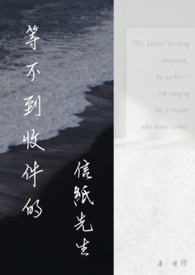 等不到收件的
信紙先生
Mr. Letter Waiting
he waits—
ink singing
for a reader
who never comes.